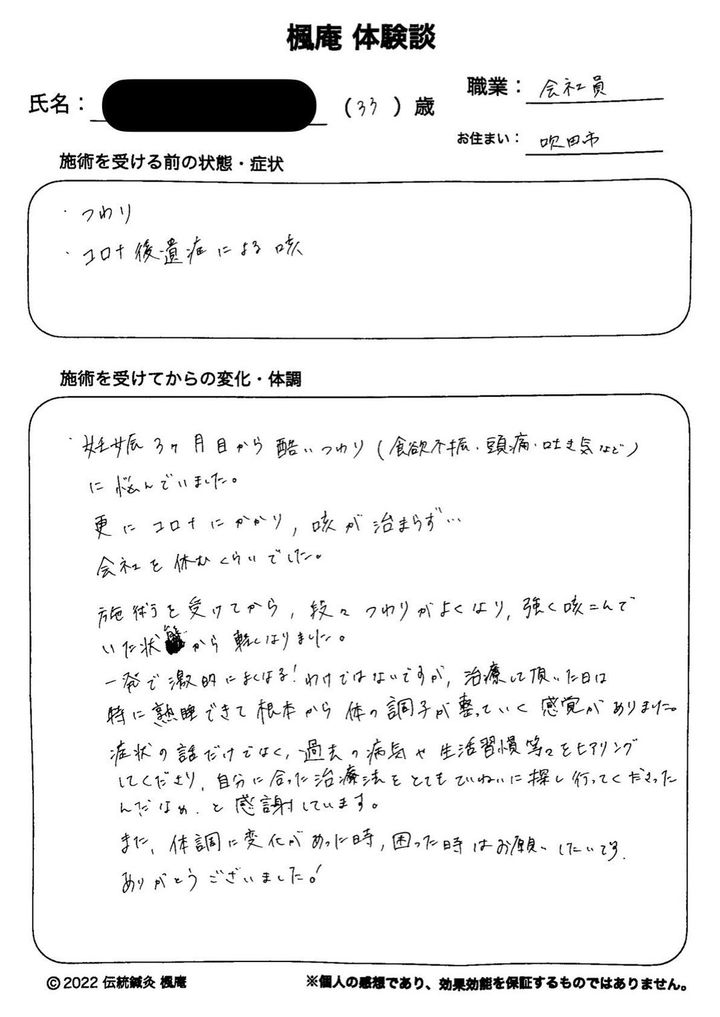 楓庵 体験談
氏名： （33）歳
職業： 会社員
お住まい： 吹田市
施術を受ける前の状態・症状
・つわり
・コロナ後遺症による咳
施術を受けてからの変化・体調
・妊娠3ヶ月目から酷いつわり（食欲不振・頭痛・吐き気など）
に悩んでいました。
更にコロナにかかり，咳が治まらず…
会社を休むくらいでした。
施術を受けてから，段々つわりがよくなり，強く咳こんで
いた状態から軽くなりました。
一発で激的によくなる！わけではないですが，治療して頂いた日は
特に熟睡できて根本から体の調子が整っていく感覚がありました。
症状の話だけでなく，過去の病気や生活習慣等々をヒアリング
してくださり，自分に合った治療法をとてもていねいに探し行ってくださった
んだなぁ，と感謝しています。
また，体調に変化があった時，困った時はお願いしたいです．
ありがとうございました！
©2022 伝統鍼灸 楓庵
※個人の感想であり、効果効能を保証するものではありません。